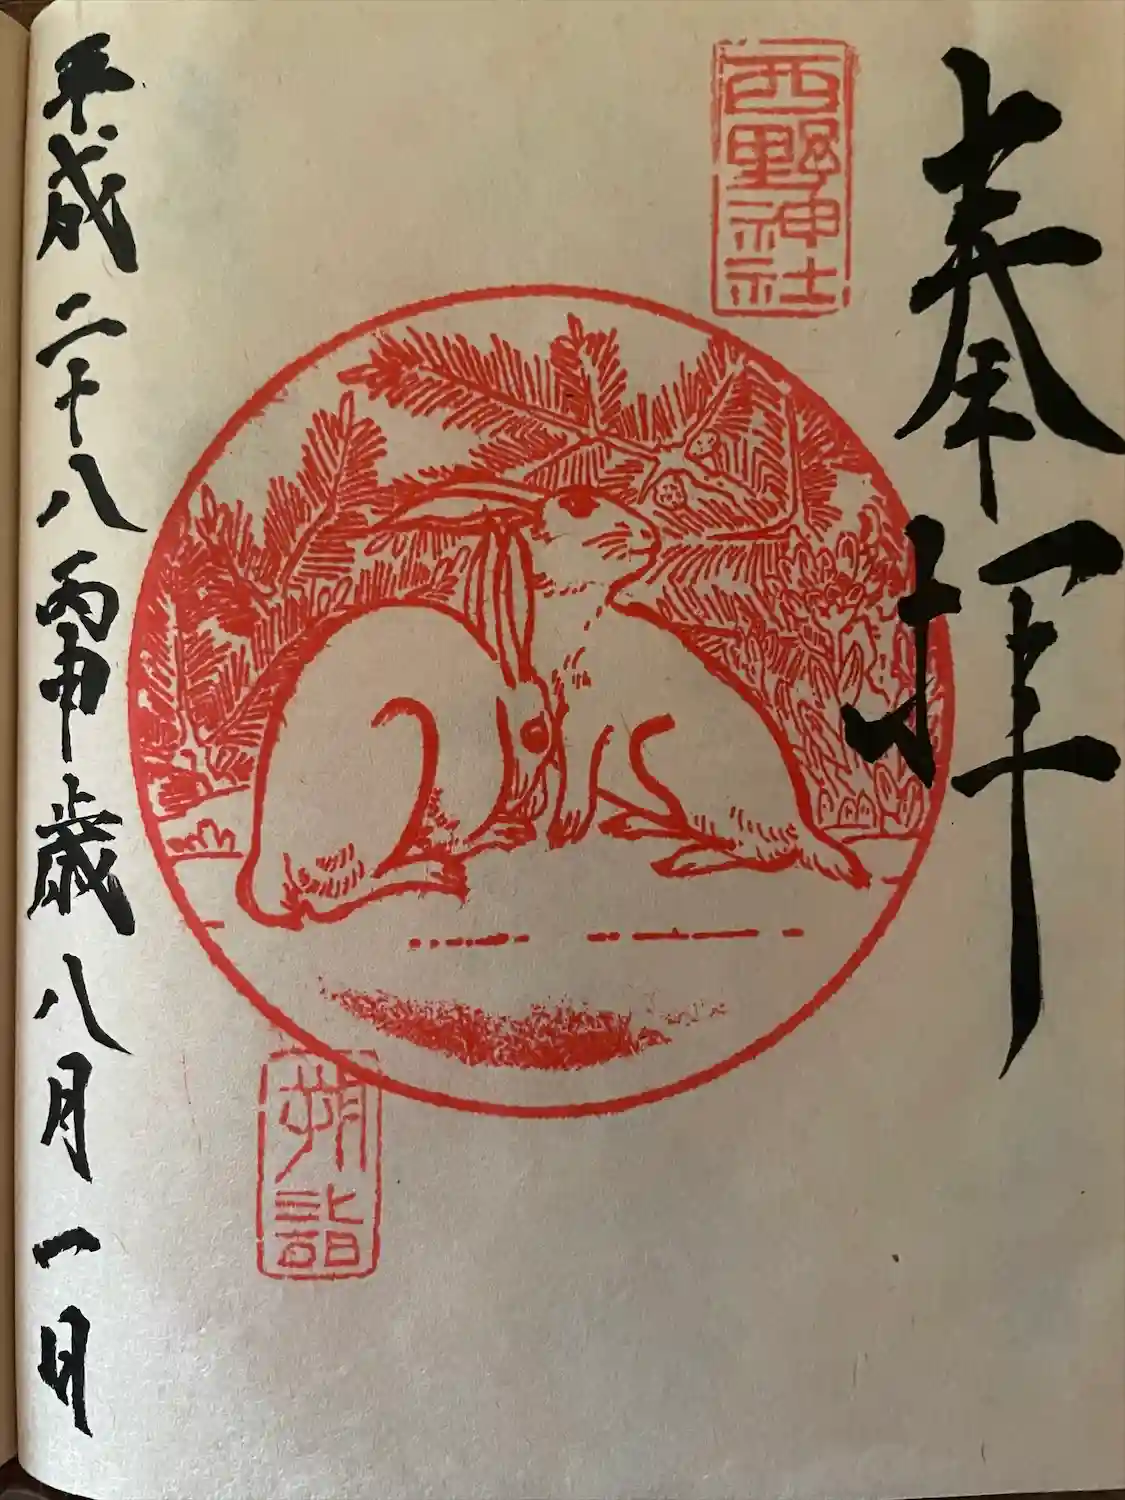 奉拝
西野神社
朔詣
平成二十八丙申歳八月一日